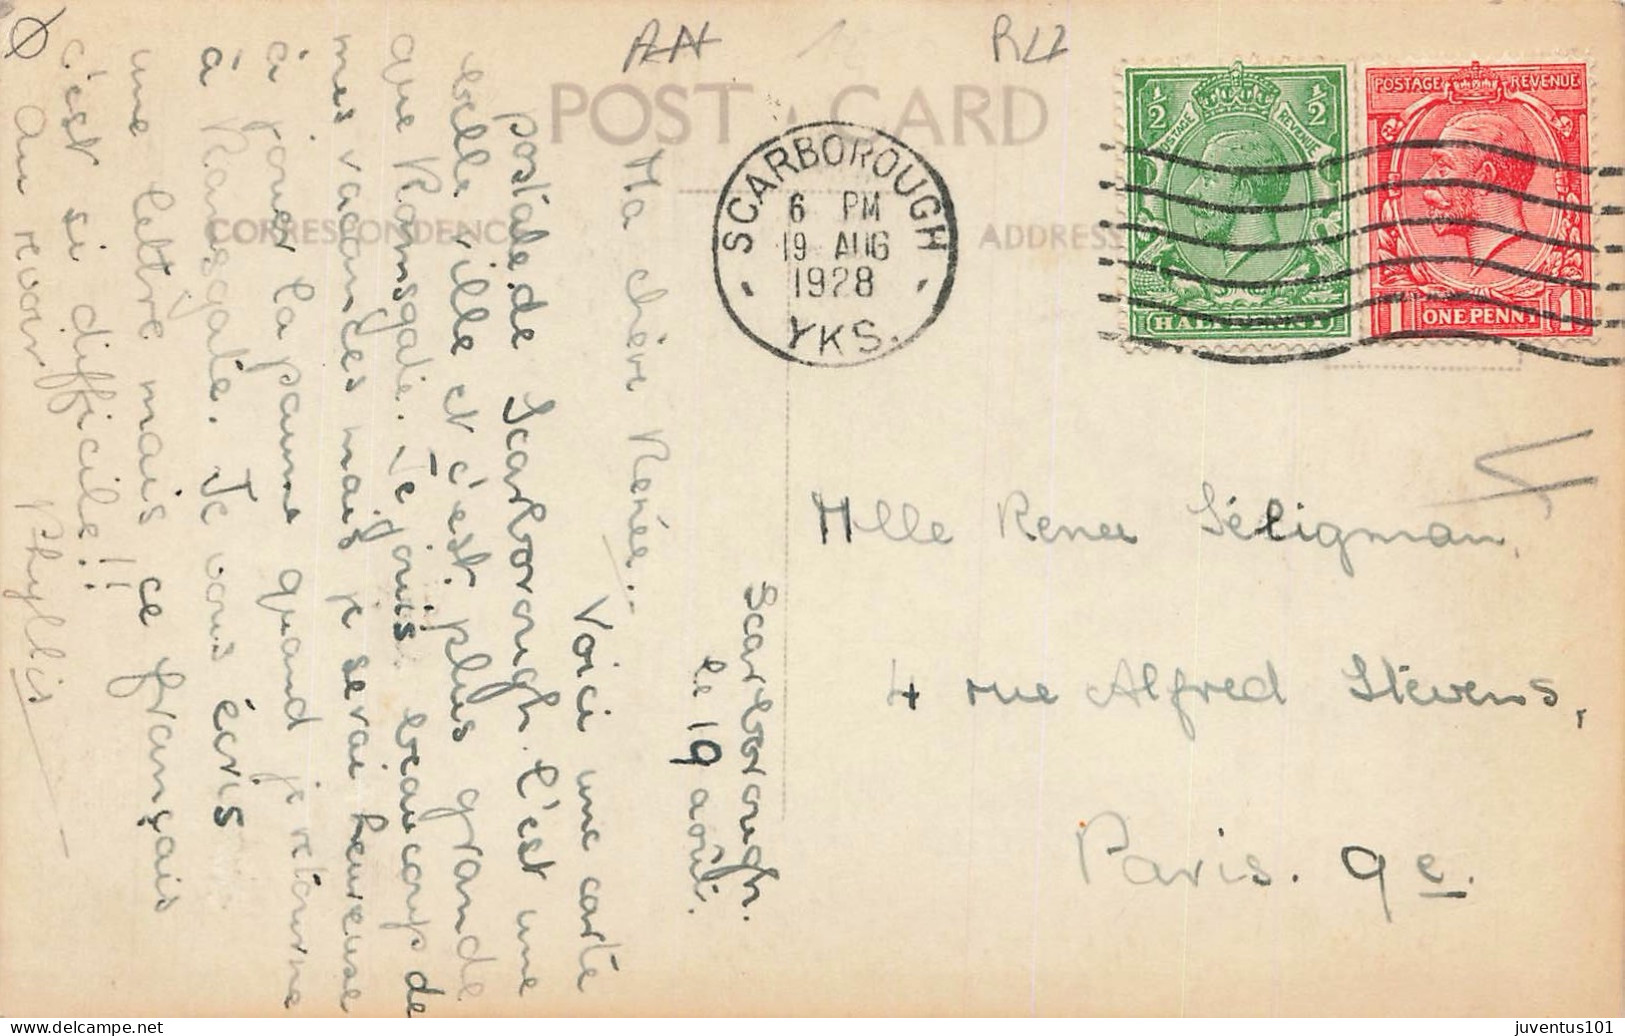 POST CARD
CORRESPONDENCE
ADDRESS
SCARBOROUGH
6 PM
19 AUG
1928
YKS.
POSTAGE REVENUE
1/2 1/2
HALFPENNY
POSTAGE REVENUE
1 ONE PENNY 1
Scarborough.
le 19 août.
Ma chère Renée..
Voici une carte
postale de Scarborough. C'est une
belle ville et c'est plus grande
que Ramsgate. Je jouis beaucoup de
mes vacances mais je serai heureuse
à jouer la paume quand je retourne
à Ramsgate. Je vous écris
une lettre mais ce français
c'est si difficile!!
Au revoir Phyllis
Mlle Renee Séligman,
4 rue Alfred Stévens,
Paris. 9e.
juventus101